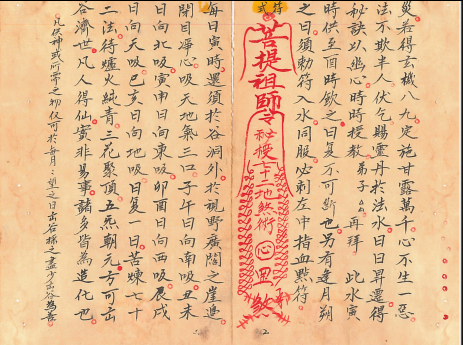 災若得玄機八九定施甘露萬千心不生一惡
法不欺半人伏乞賜靈丹於法水日日昇遷得
秘訣以幽心時時授教弟子厶厶再拜 此水寅
時供至酉時飲之日復不可斷也另有逢月朔
之日須勅符入水同服必刺左中指血點符
符式
菩提祖師令秘授七十二地煞術
每日寅時選須於谷洞外於視野廣闊之崖邊
閉目凝心吸天地氣三口子午日向南吸丑未
日向北吸寅申日向東吸卯酉日向西吸辰戌
日向天吸巳亥日向地吸日復一日苦煉七十
二法待爐火純青三花聚頂五炁朝元方可出
谷濟世凡人得仙蜜非易事諸多皆為造化也
凡供神或所帶之物仅可於每月望之日出谷採之盡少出谷為善
2